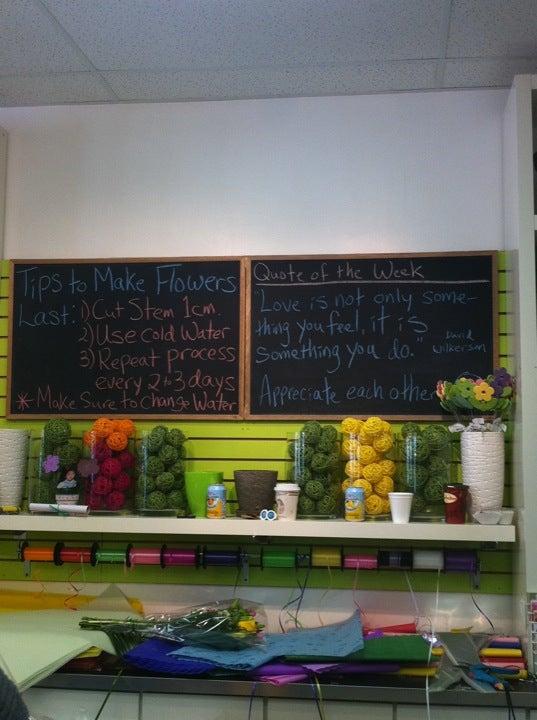 Tips to Make Flowers
Last: 1) Cut Stem 1cm.
2) Use cold Water
3) Repeat process
every 2 to 3 days
* Make Sure to Change Water
Quote of the Week
"Love is not only some-
thing you feel, it is
something you do."
David
Wilkerson
Appreciate each other